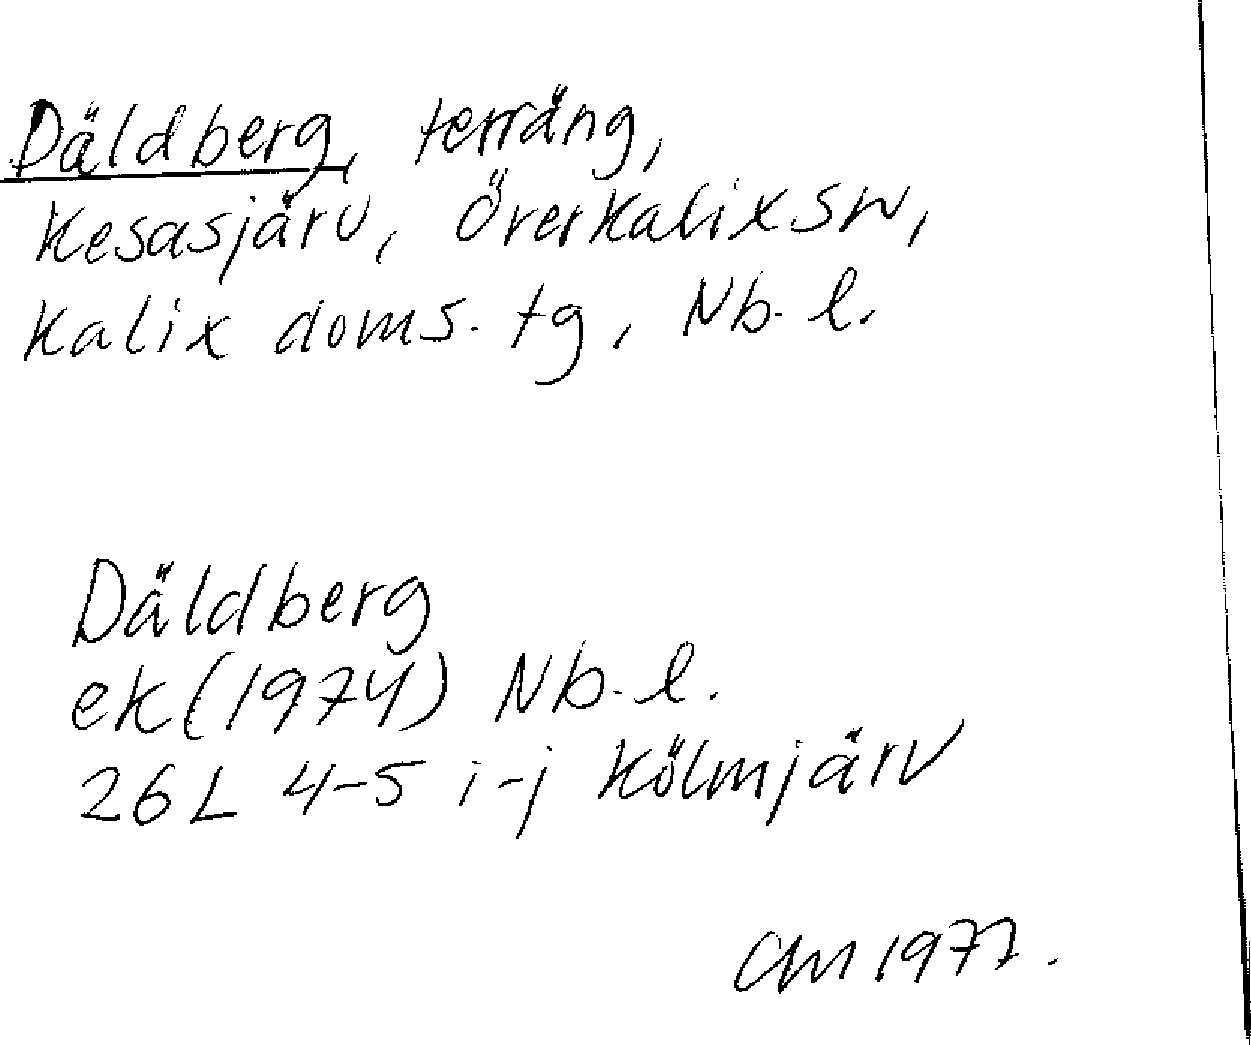 Däldberg, terräng,
Kesasjärv, Överkalix sn,
Kalix doms. tg, Nb. l.
Däldberg
ek (1974) Nb. l.
26L 4-5 i-j Kölmjärv
1977.